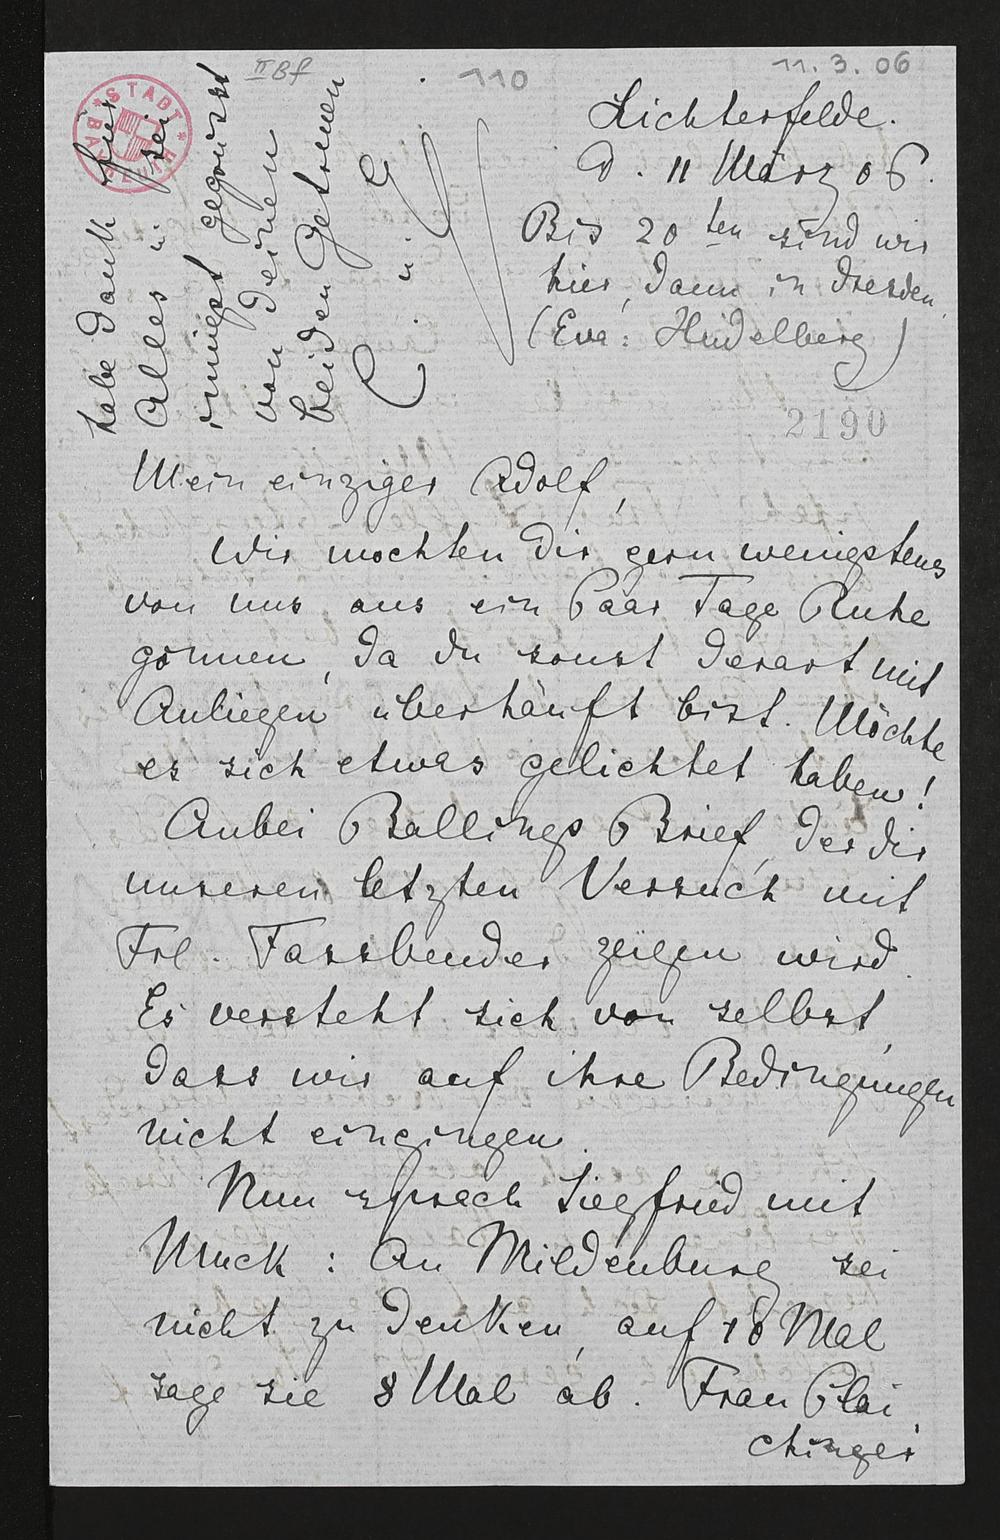 II Bf
110
11. 3. 06
STADT BAYREUTH
Lichterfelde.
d. 11 März 06.
Bis 20ten sind wir
hier, dann in Dresden,
(Eva: Heidelberg)
2190
habe Dank für
Alles u. sei
innigst gegrüsst
von deinen
beiden Getreuen
C. u. E.
Mein einziger Adolf,
Wir mochten dir gern wenigstens
von uns aus ein Paar Tage Ruhe
gönnen, da du sonst derart mit
Anliegen überhäuft bist. Möchte
es sich etwas gelichtet haben!
Anbei Ballings Brief, der dir
unseren letzten Versuch mit
Frl. Fassbender zeigen wird.
Es versteht sich von selbst,
dass wir auf ihre Bedingungen
nicht eingingen.
Nun sprach Siegfried mit
Muck: An Mildenburg sei
nicht zu denken, auf 10 Mal
sage sie 8 Mal ab. Frau Plai
chinger